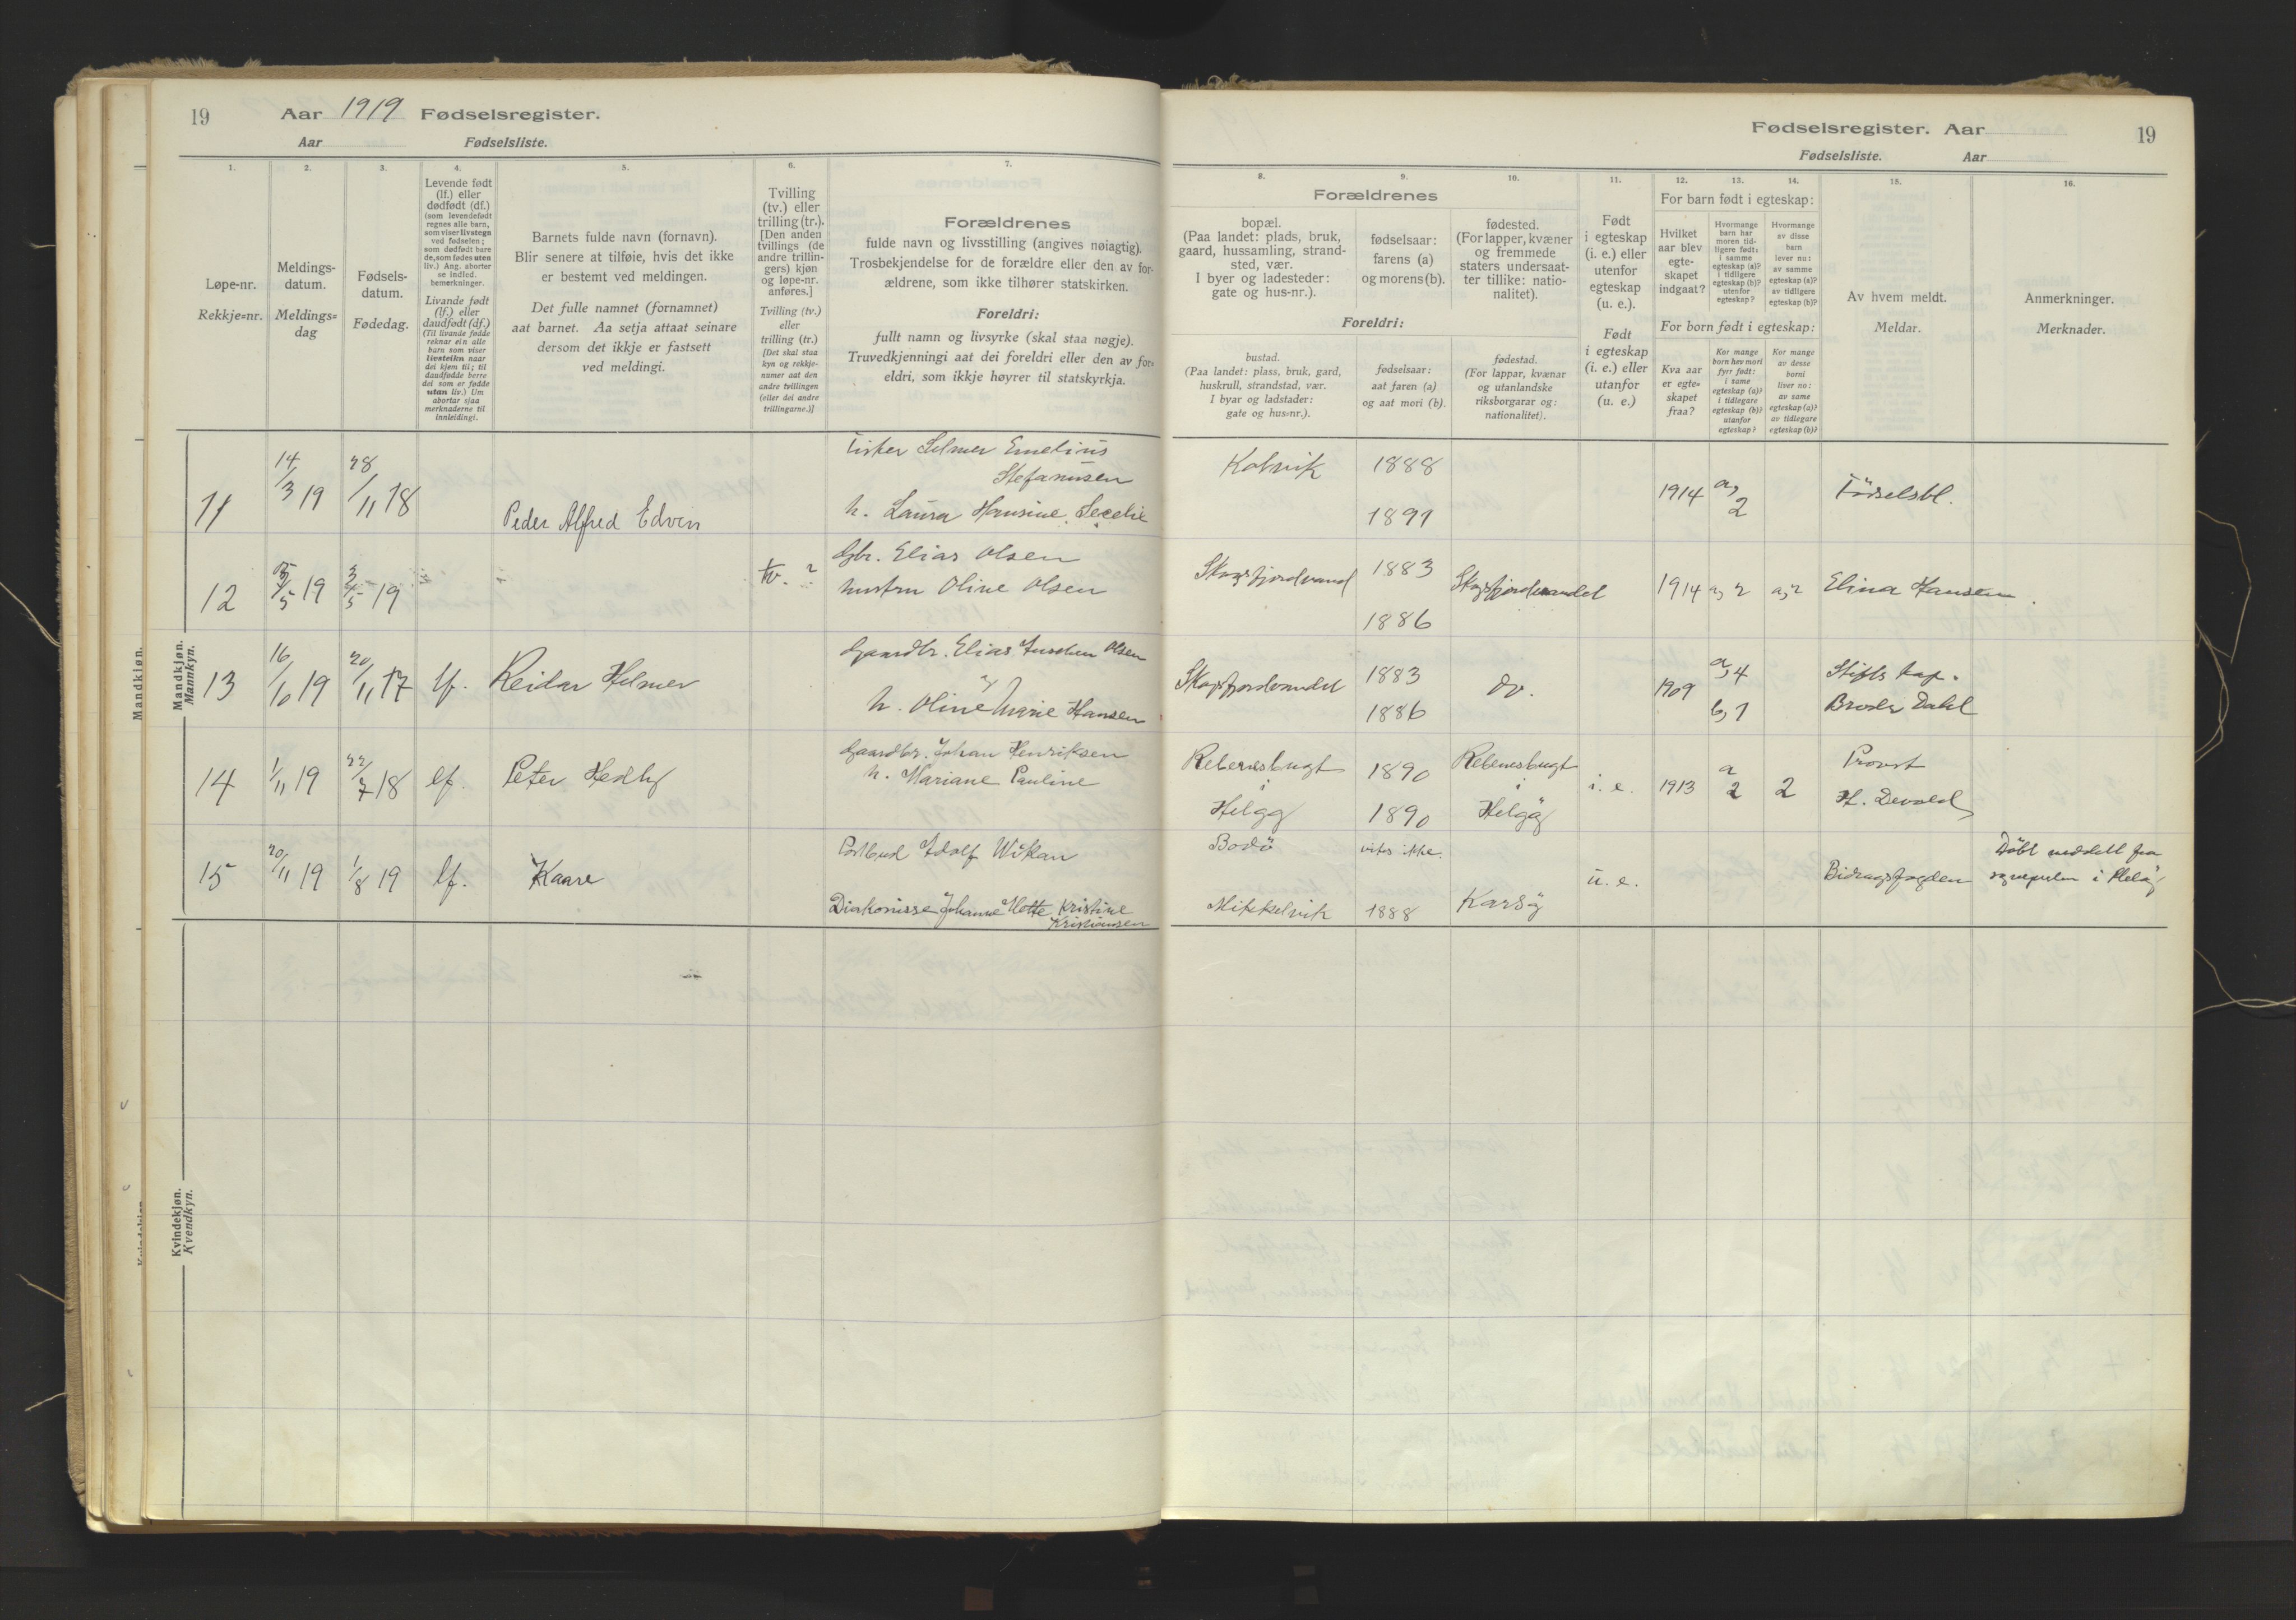 19 Aar 1919 Fødselsregister.
Aar Fødselsliste.
1. 2. 3. 4. 5. 6. 7.
Løpe-nr.
Rekkje=nr.
Meldings-
datum.
Meldings=
dag
Fødsels-
datum.
Fødedag.
Levende født
(lf.) eller
dødfødt (df.)
(som levendefødt
regnes alle barn,
som viser livstegn
ved fødselen;
som dødfødt bare
de, som fødes uten
liv.) Ang. aborter
se indled.
bemerkninger.
Livande født
(lf.) eller
daudfødt (df.)
(Til livande fødde
reknar ein alle
barn som viser
livsteikn naar
dei kjem til; til
daudfødde berre
dei som er fødde
utan liv.) Um
abortar sjaa
merknaderne til
innleidingi.
Barnets fulde navn (fornavn).
Blir senere at tilføie, hvis det ikke
er bestemt ved meldingen.
Det fulle namnet (fornamnet)
aat barnet. Aa setja attaat seinare
dersom det ikkje er fastsett
ved meldingi.
Tvilling
(tv.) eller
trilling (tr.).
[Den anden
tvillings (de
andre trillin-
gers) kjøn
og løpe-nr.
anføres.]
Tvilling (tv.)
eller
trilling (tr.)
[Det skal staa
kyn og rekkje-
numer aat den
andre tvillingen
(eller dei andre
trillingarne.)]
Forældrenes
fulde navn og livsstilling (angives nøiagtig).
Trosbekjendelse for de forældre eller den av for-
ældrene, som ikke tilhører statskirken.
Foreldri:
fullt namn og livsyrke (skal staa nøgje).
Truvedkjenningi aat dei foreldri eller den av for=
eldri, som ikkje høyrer til statskyrkja.
Mandkjøn.
Mandkjøn.
Mannkyn.
11 14/3 19 28/11 18 Peder Alfred Edvin
Fisker Selmer Emelius
Stefanusen
h. Laura Hansine Secelie
12 19 3/5 19 tv. ?
Gbr. Elias Olsen
hustru Oline Olsen
13 16/10 19 20/11 17 lf. Reidar Helmer
Gaardbr. Elias Olsen
h. Oline Marie Hansen
14 1/11 19 22/7 18 lf. Peter Hedly
Gaardbr. Johan Henriksen
h. Mariane Pauline
15 20/11 19 1/8 19 lf. Kaare
Postbud Adolf Wikan
Diakonisse Johanne Mette Kristine
Kristiansen
Kvindekjøn.
Kvendkyn.
Fødselsregister. Aar 19
Fødselsliste. Aar
8. 9. 10. 11. 12. 13. 14. 15. 16.
Forældrenes
bopæl.
(Paa landet: plads, bruk,
gaard, hussamling, strand-
sted, vær.
I byer og ladesteder:
gate og hus-nr.).
fødselsaar:
farens (a)
og morens (b).
fødested.
(For lapper, kvæner
og fremmede
staters undersaat-
ter tillike: natio-
nalitet).
Foreldri:
bustad.
(Paa landet: plass, bruk, gard,
huskrull, strandstad, vær.
I byar og ladstader:
gate og hus=nr.).
fødselsaar:
aat faren (a)
og aat mori (b).
fødestad.
(For lappar, kvænar
og utanlandske
riksborgarar og:
nationalitet).
Født
i egteskap
(i. e.) eller
utenfor
egteskap
(u. e.).
Født
i egteskap
(i. e.) eller
utanfor
(u. e.)
For barn født i egteskap:
Hvilket
aar blev
egte-
skapet
indgaat?
Hvormange
barn har
moren tid-
ligere født:
i samme
egteskap (a)?
i tidligere
egteskap (b)?
utenfor
egteskap?
Hvormange
av disse
barn
lever nu:
av samme
egteskap (a)?
av tidligere
egteskap (b)?
For born født i egteskap:
Kva aar
er egte=
skapet
fraa?
Kor mange
born hev mori
fyrr født:
i same
egteskap (a)?
i tidlegare
egteskap (b)?
utanfor
egteskap?
Kor mange
av desse
borni
liver no:
av same
egteskap (a)?
av tidlegare
egteskap (b)?
Av hvem meldt.
Meldar.
Anmerkninger.
Merknader.
Kalvik 1888 1914 a, 2 Fødselsbl.
1891
Skogsfjordvand 1883 Skogsfjordvandet 1914 a, 2 a, 2 Elina Hansen.
1886
Skogsfjordvandet 1883 do. 1909 a, 4 Stifts kap.
1886 b, 1 Broder Dahl
Rebenesbugt 1890 Rebenesbugt i. e. 1913 a 2 2 Provst
i i
Helgø 1890 Helgø H. Devold
Bodø vites ikke. u. e. Bidragsfogden Døbt meddelt fra
sognepresten i Helgø
Mikkelvik 1888 Karsø